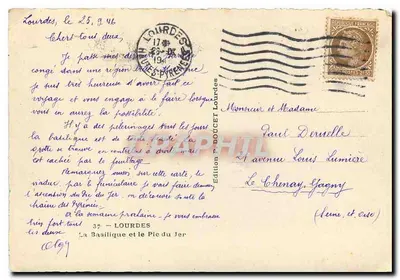 Lourdes, le 25.9.46
Chers tous deux,
Je passe mes
congé dans une région
suis bien heureux d'avoir fait ce
voyage et vous engage à le faire lorsque
vous en aurez la possibilité.
Il y a des pèlerinages tous les jours
la basilique est de toute
grotte se trouve en
est cachée par le feuillage
Remarquez aussi sur cette carte, le
par le funiculaire je vous
l'ascension du Pic du Jer, on découvre toute la
chaîne des Pyrénées.
à la semaine prochaine. Je vous embrasse
très fort tous
les deux.
LOURDES
17
25-9
194
HTES-PYRENEES
Monsieur et Madame
Paul Deruelle
21 avenue Louis Lumière
Le Chenay-Gagny
(Seine et Oise)
Edition P. DOUCET Lourdes
CPARAMA
52 - LOURDES
La Basilique et le Pic du Jer